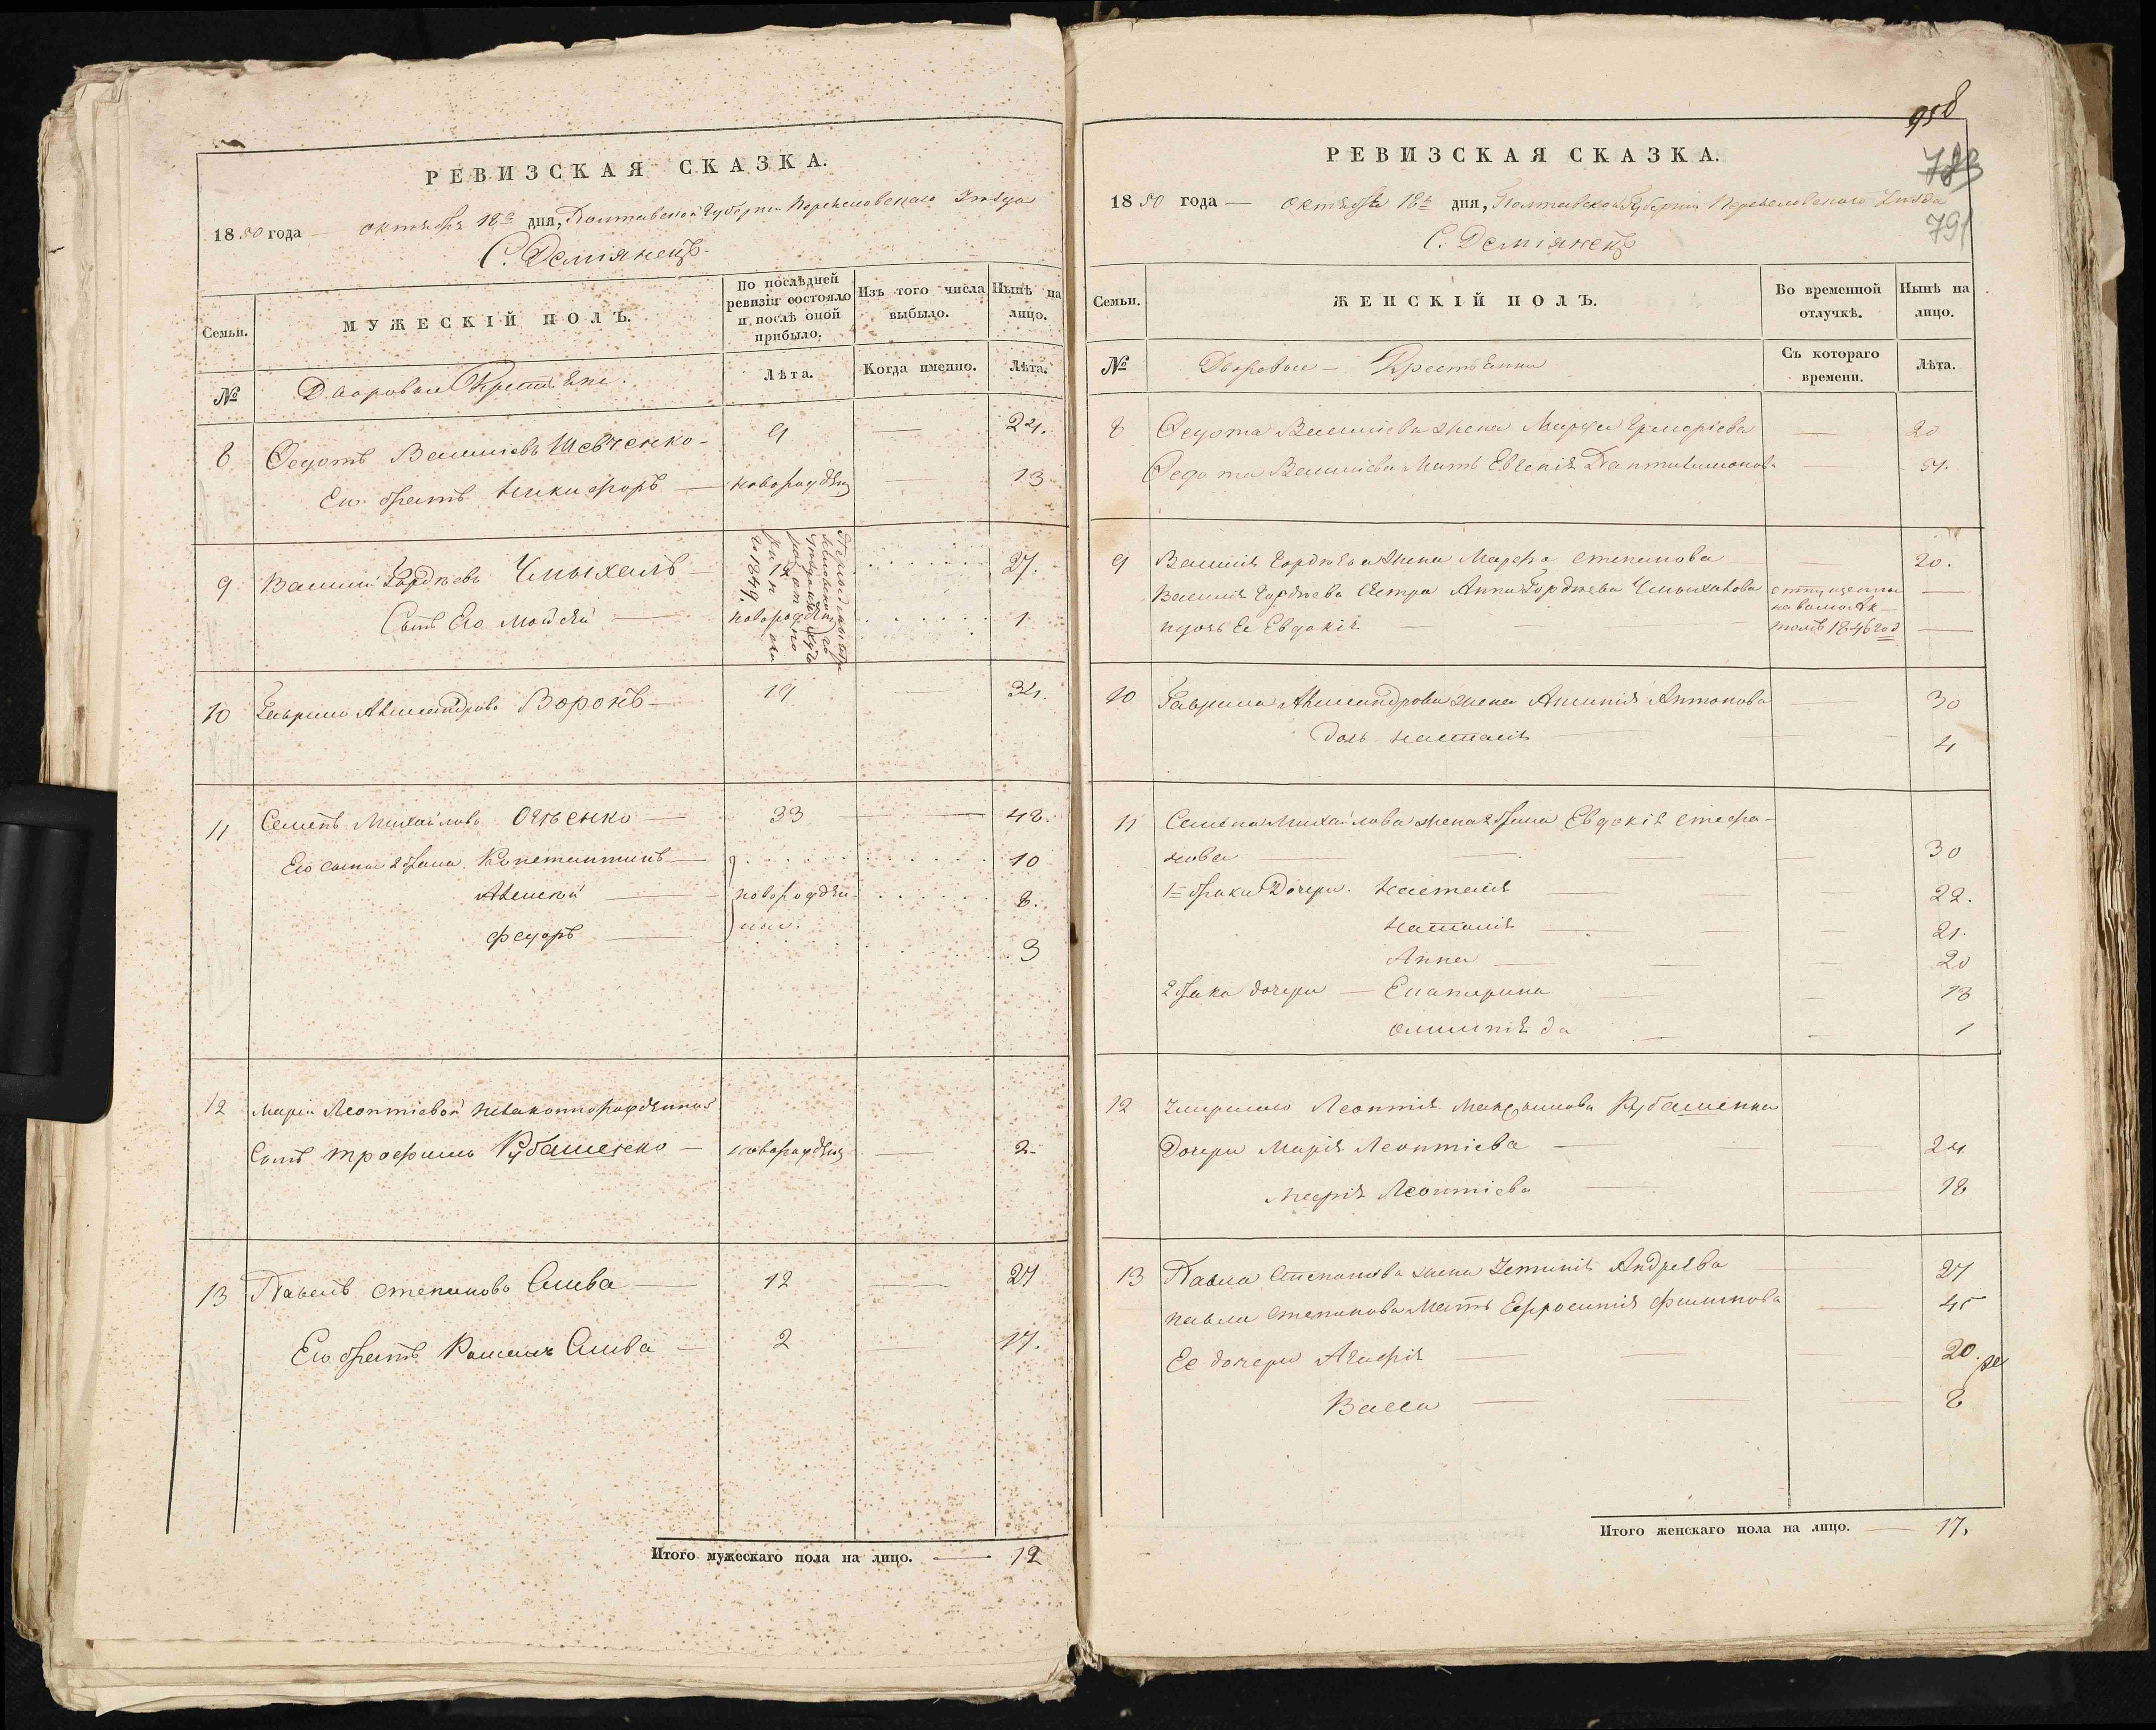 РЕВИЗСКАЯ СКАЗКА.
1850 года октября 18го дня, Полтавской Губернии Переяславскаго Уезда
С. Деміянецъ.
Семьи.
МУЖЕСКІЙ ПОЛЪ.
По послѣдней ревизіи состояло и послѣ оной прибыло.
Изъ того числа выбыло.
Нынѣ на лицо.
№
Дворовые Крестьяне.
Лѣта.
Когда именно.
Лѣта.
8 Федотъ Василіевъ Шевченко 9 — 24.
Его братъ Никифоръ — новорожден — 13
9 Василій Гордѣевъ Чмыхалъ 27.
Сынъ Его Мойсей — новорожден 1
10 Гаврило Александровъ Воронъ — 19 — 34.
11 Семенъ Михайловъ — 33 — 48.
Его сынъ 2 брака Константинъ — 10
Алексей — новорожден- 8.
Федоръ — ные. 3
12 Маріи Леонтіевой незаконнорожденной
Сынъ Трофимъ Рубашенко — новорожден — 2
13 Павелъ Степановъ Слива — 12 — 27
Его братъ Слива — 2 17.
Итого мужескаго пола на лицо. — 12
958
783
791
РЕВИЗСКАЯ СКАЗКА.
1850 года — октября 18го дня, Полтавской Губерніи Переяславскаго Уезда
С. Деміянецъ
Семьи.
ЖЕНСКІЙ ПОЛЪ.
Во временной отлучкѣ.
Нынѣ на лицо.
№
Дворовые — Крестьянки
Съ котораго времени.
Лѣта.
8 Федота Василіева жена Григоріева — 20
Федота Василіева Мать Евгенія Пантилимонова 54.
9 Василія Гордѣева жена Марфа Степанова — 20.
Василія Гордѣева Сестра Анна Гордѣева Чмыхалова отпущенна —
на волю Ак-
и дочь Ее Евдокія — — — томъ 1846 год —
10 Гаврила Александрова жена Антонова — 30
Дочь Наталія — 4
11 Семена Михайлова жена 2 брака Евдокія Стефа-
нова — — — 30
1го брака Дочери. — 22.
Наталія — — — 21.
Анна — — — 20
2 брака дочери — Екатерина — 13
— 1
12 Умершаго Леонтія Максимова Рубашенка
Дочери Марія Леонтіева — — — 24
Марія Леонтіева — 18
13 Павла Степанова жена Андрѣева — 27
Павла Степанова Мать Ефросинія Филипова 45
Ее дочери Агафія — — — 20.
Васса — — — 8
Итого женскаго пола на лицо. — 17,